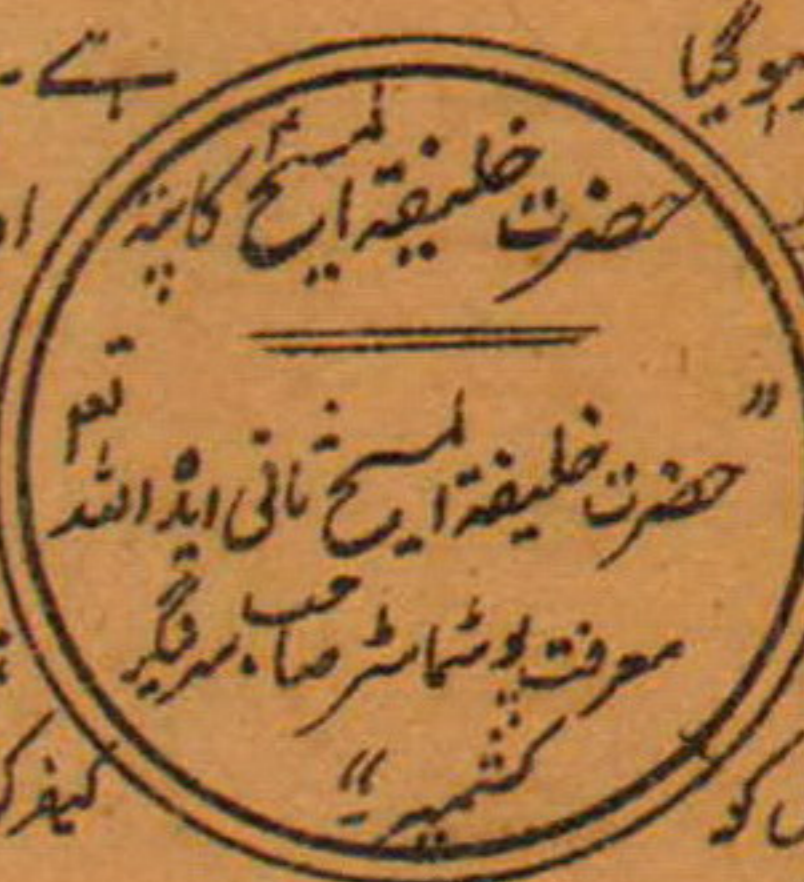 ہوگیا
ہے۔
حضرت خلیفۃ المسیح کا پتہ
"حضرت خلیفۃ المسیح ثانی ایدہ اللہ تعم
معرفت پوسٹماسٹر صاحب۔ سرینگر
کشمیر۔"